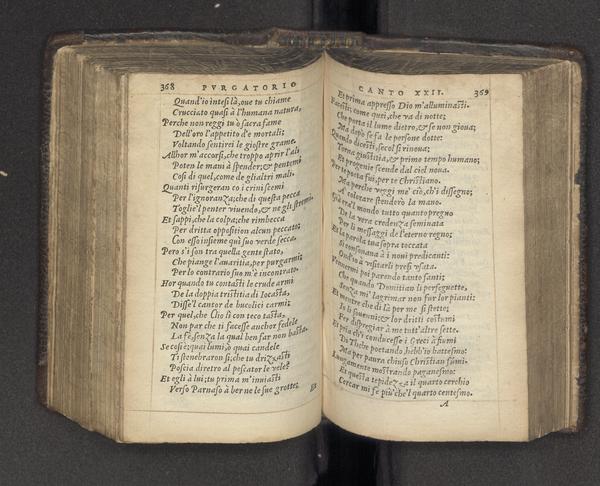 368 PVRGATORIO
Quand'io intesi là, oue tu chiame
Crucciato quasi à l'humana natura,
Perche non reggi tu ò sacra fame
Dell'oro l'appetito d'e mortali;
Voltando sentirei le giostre grame.
Allhor m'accorsi, che troppo aprir l'ali
Poten le mani à spender; & pentemi
Cosi di quel, come de gli altri mali.
Quanti risurgeran co i crini scemi
Per l'ignoranza; che di questa pecca
Toglie'l penter viuendo, & ne gli stremi.
Et sappi, che la colpa; che rimbecca
Per dritta opposition alcun peccato;
Con esso insieme quì suo verde secca.
Pero s'i son tra quella gente stato,
Che piange l'auaritia, per purgarmi;
Per lo contrario suo m'è incontrato.
Hor quando tu contasti le crude armi
De la doppia tristitia di Iocasta,
Disse'l cantor de bucolici carmi;
Per quel, che Clio lì con teco tasta,
Non par che ti facesse anchor fedele
La fè, senza la qual ben far non basta.
Se cosi è; quai lumi, ò quai candele
Ti stenebraron si; che tu drizzasti
Poscia diretro al pescator le vele?
Et egli à lui; tu prima m'inuiasti
Verso Parnaso à ber ne le sue grotte;
CANTO XXII. 369
Et prima appresso Dio m'alluminasti.
Facesti; come quei, che va di notte;
Che porta il lume dietro, & se non gioua;
Ma dopò se fa le persone dotte:
Quando dicesti, secol si rinoua;
Torna giustitia, & primo tempo humano;
Et progenie scende dal ciel noua.
Per te poeta fui, per te Christiano.
Ma perche veggi me' ciò, ch'i dissegno;
A colorare stenderò la mano.
Già era'l mondo tutto quanto pregno
De la vera credenza seminata
Per li messaggi de l'eterno regno;
Et la parola tua sopra toccata
Si consonaua à i noui predicanti:
Ond'io à visitarli presi vsata.
Vennermi poi parendo tanto santi;
Che quando Domitian li perseguette,
Senza mi' lagrimar non fur lor pianti:
Et mentre che di là per me si stette;
Io li souenni; & lor dritti costumi
Fer dispregiar à me tutt'altre sette.
Et pria ch'i conducesse i Greci à fiumi
Di Thebe poetando hebb'io battesmo:
Ma per paura chiuso Christian fumi,
Lungamente mostrando paganesmo:
Et questa tepidezza il quarto cerchio
Cerchar mi fe più che'l quarto centesmo.
A